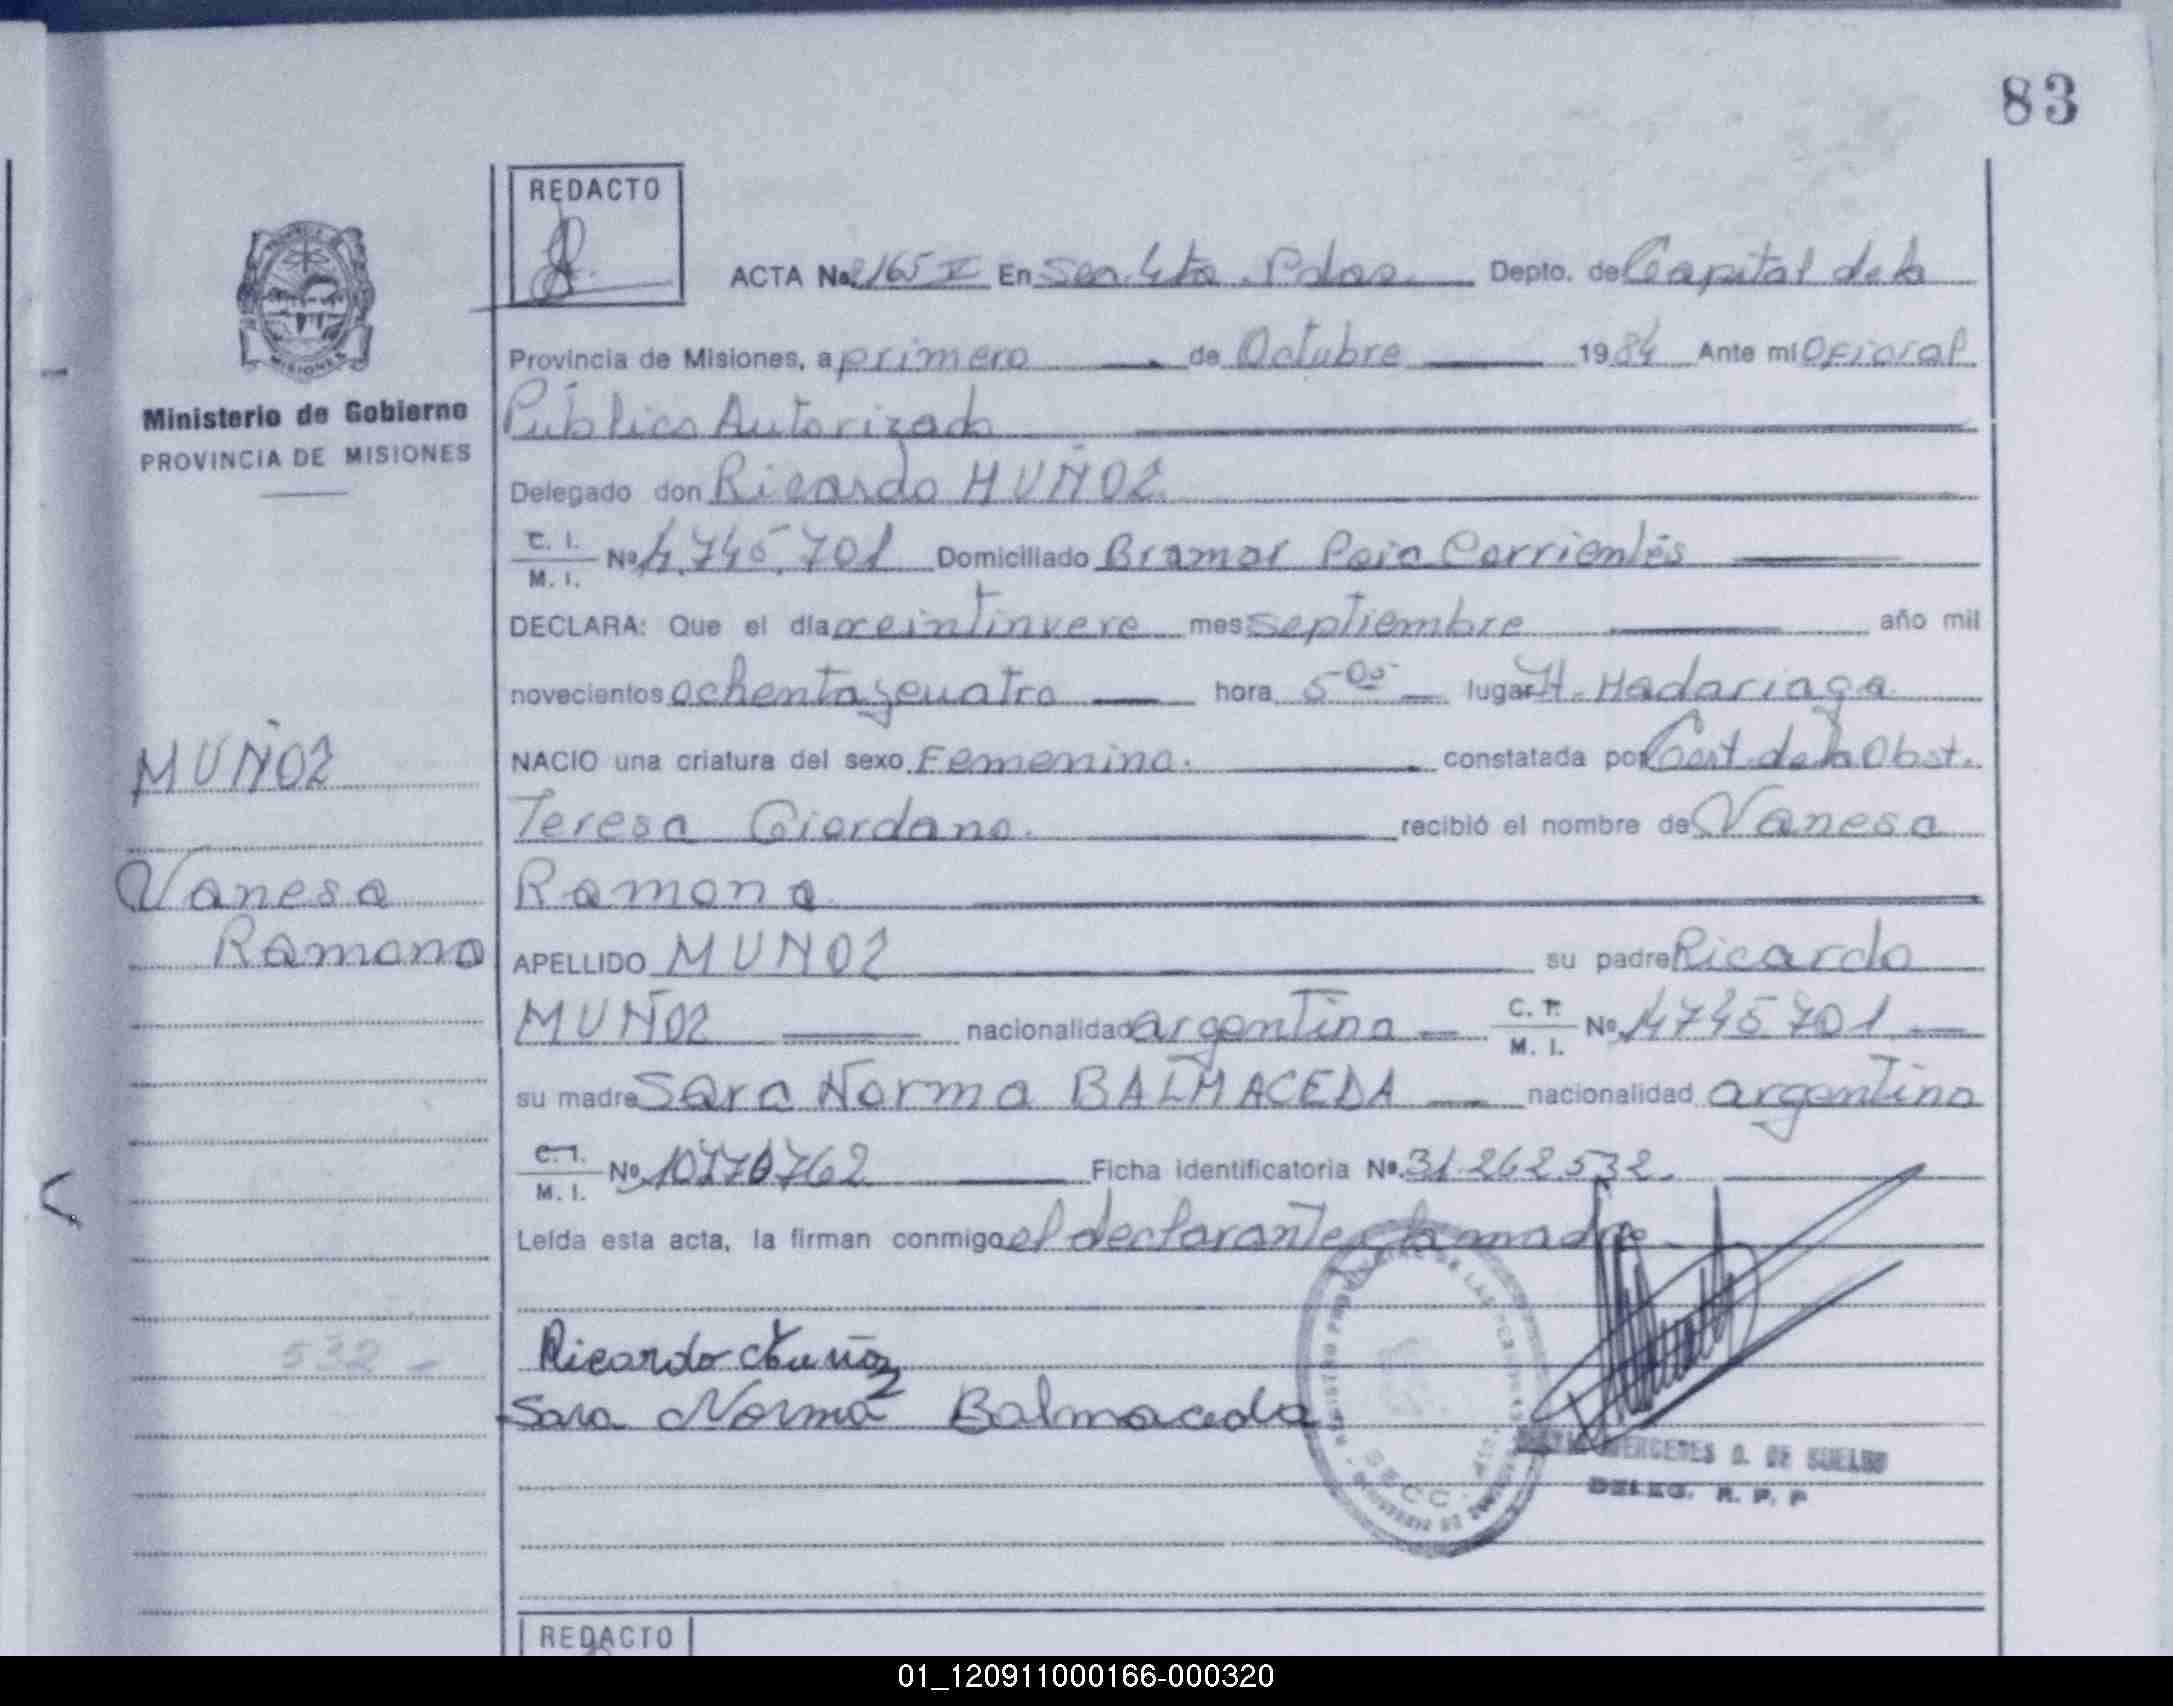 83
REDACTO
ACTA No 2165 V En Sec. 4ta. Pdas. Depto. de Capital de la
Provincia de Misiones, a primero de Octubre 1984 Ante mi Oficial
MISIONES
Ministerio de Gobierno
PROVINCIA DE MISIONES
Público Autorizado
Delegado don Ricardo MUÑOZ
C. I. M. I. Nº 4.745.701 Domiciliado Bramar Corrientes
DECLARA: Que el día mes septiembre año mil
novecientos ochenta y cuatro hora 5-05 lugar H. Madariaga
NACIO una criatura del sexo Femenino. constatada por Cert. de la Obst.
Teresa Giordano. recibió el nombre de Vanesa
Ramona
APELLIDO MUÑOZ su padre Ricardo
MUÑOZ nacionalidad argentina C. I. M. I. Nº 4745701
su madre Sara Norma BALMACEDA nacionalidad argentina
C. I. M. I. Nº 10770762 Ficha identificatoria Nº 31.262.532.
Leída esta acta, la firman conmigo el declarante y la madre
MUÑOZ
Vanesa
Ramona
532 -
Ricardo Muñoz
Sara Norma Balmaceda
MERCEDES D. DE
DELEG. R. P. P
REDACTO
01_120911000166-000320